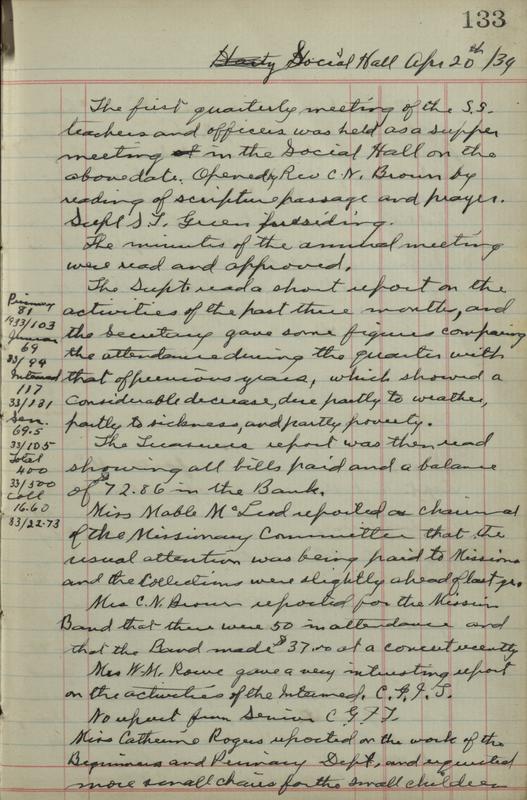 133
Hasty Social Hall Apr 20th/39
The first quarterly meeting of the S.S.
teachers and officers was held as a supper
meeting at in the Social Hall on the
above date. Opened by Rev C.N. Brown by
reading of scripture passage and prayer.
Supt S.T. Green presiding.
The minutes of the annual meeting
were read and approved.
The Supt read a short report on the
activities of the past three months, and
the Secretary gave some figures comparing
the attendance during the quarter with
that of previous years, which showed a
considerable decrease, due partly to weather,
partly to sickness, and partly poverty.
The Treasurers report was then read
showing all bills paid and a balance
of $72.86 in the Bank.
Miss Mable McLeod reported as chairman
of the Missionary Committee that the
usual attention was being paid to Missions
and the Collections were slightly ahead of last yr.
Mrs C.N. Brown reported for the Mission
Band that there were 50 in attendance and
that the Band made $37.00 at a concert recently
Mrs W.M. Rowe gave a very interesting report
on the activities of the Intermed. C.G.I.T.
No report from Senior C G I T.
Miss Catherine Rogers reported on the work of the
Beginners and Primary Dept, and requested
more small chairs for the small children
Primary
81
1933/103
Junior
69
33/94
Intermed
117
33/181
Sen.
69.5
33/105
Total
400
33/500
Coll
16.60
33/22.73